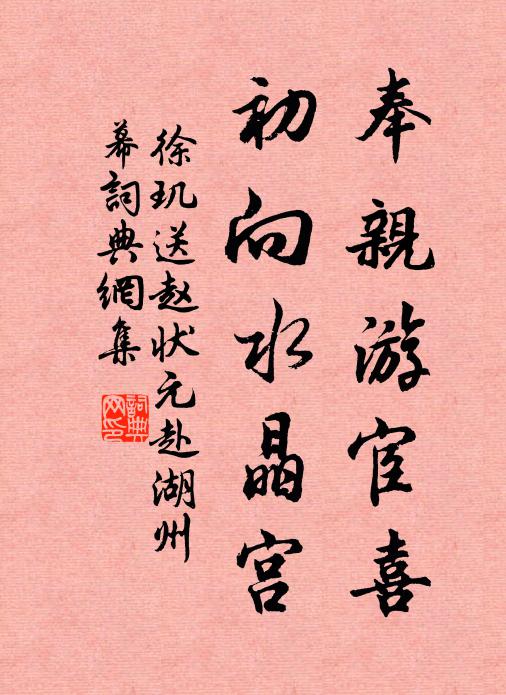 奉親游宦喜
初向水晶宫
徐玑送赵状元赴湖州
幕詞典網集
詞典
网印